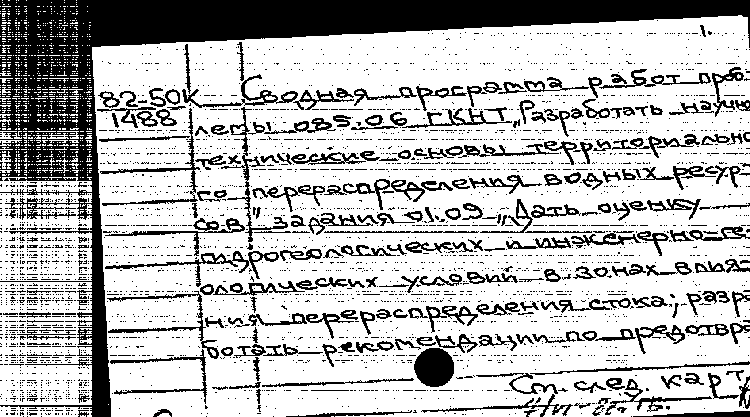 1.
82-50К Сводная программа работ проб-
1488 лемы 085.06 ГКНТ „Разработать научно
технические основы территориально
го перераспределения водных ресур-
сов" задания 01.09 „Дать оценку
гидрогеологических и инженерно-ге-
ологических условий в зонах влия-
ния перераспределения стока; разра
ботать рекомендации по предотвра
См. след. карт.